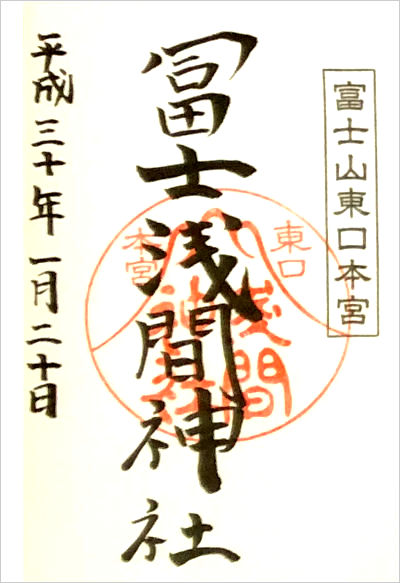 富士山東口本宮
冨士浅間神社
東口
本宮
浅間
神社
平成三十年一月二十日